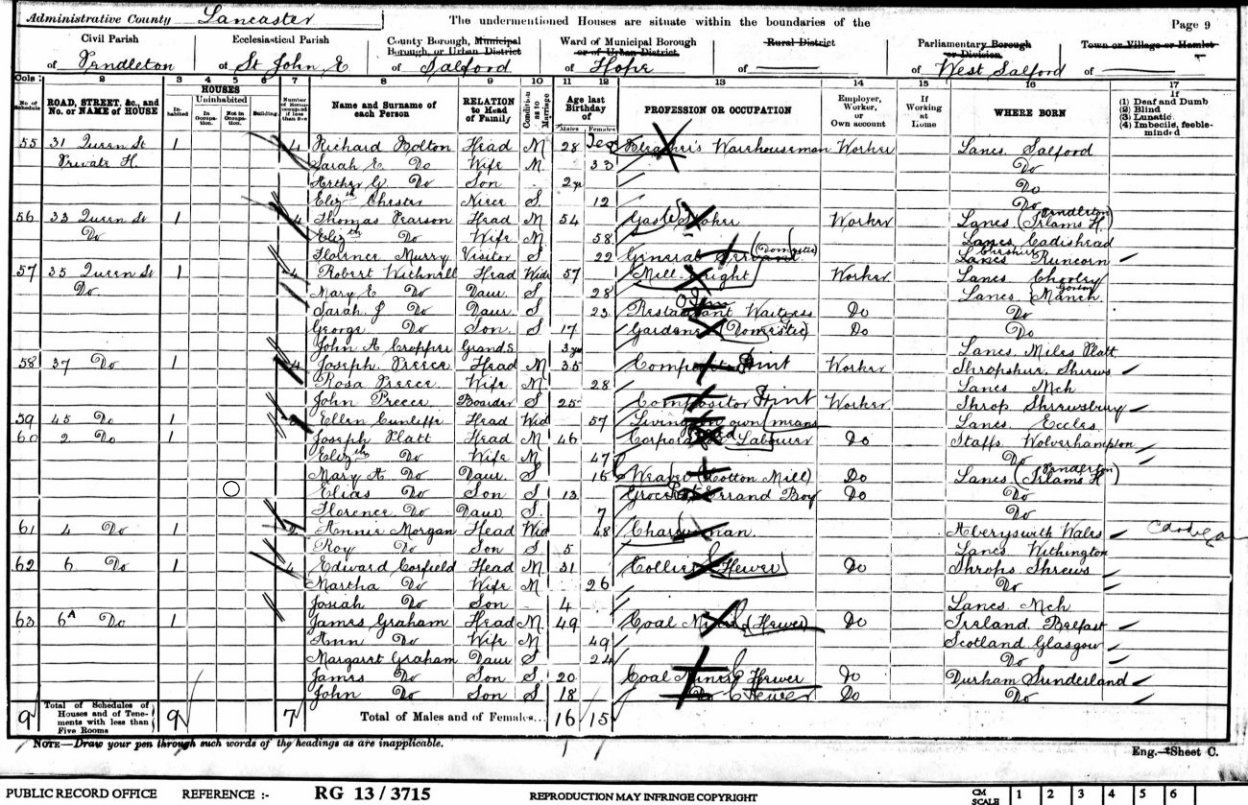 Administrative County Lancaster The undermentioned Houses are situate within the boundaries of the Page 9
Civil Parish Ecclesiastical Parish County Borough, Municipal Borough, or Urban District Ward of Municipal Borough or of Urban District Rural District Parliamentary Borough or Division Town or Village or Hamlet
of Pendleton of St John E of Salford of Hope of of West Salford of
Cols: 1 2 3 4 5 6 7 8 9 10 11 12 13 14 15 16 17
No. of Schedule ROAD, STREET, &c., and No. or NAME of HOUSE HOUSES Inhabited Uninhabited In Occupation. Not in Occupation. Building. Number of Rooms occupied if less than five Name and Surname of each Person RELATION to Head of Family Condition as to Marriage Age last Birthday of Males Females PROFESSION OR OCCUPATION Employer, Worker, or Own account If Working at Home WHERE BORN If (1) Deaf and Dumb (2) Blind (3) Lunatic (4) Imbecile, feeble-minded
55 31 Queen St 1 4 Richard Bolton Head M 28 Warehouseman Worker Lancs. Salford
Private H. Sarah E. Do Wife M 33 Do
Arthur G. Do Son 2 Do
Elizth Chester Niece S. 12 Do
56 33 Queen St 1 4 Thomas Pearson Head M 54 Gas Stoker Worker Lancs (Pendleton Irlams H.)
Do Elizth Do Wife M 58 Lancs. Cadishead
Florence Murry Visitor S 22 General Servant (Domestic) Cheshire Lancs Runcorn
57 35 Queen St 1 4 Robert Head Wid 57 Mill Wright Worker Lancs Chorley
Do. Mary E Do Daur. S 28 Lancs. (Gorton Manch.
Sarah J Do Daur. S 23 Restaurant Waitress Do Do
George Do Son. S 17 Gardener (Domestic) Do Do
John A Cropper GrandS 3 Lancs. Miles Platt
58 37 Do 1 4 Joseph Preece Head M 35 Compositor Print Worker Shropshire Shrews
Rosa Preece Wife M 28 Lancs. Mch
John Preece Boarder S 25 Compositor Print Worker Shrop Shrewsbury
59 45 Do 1 Ellen Cunliffe Head Wid 57 Living on own means Lancs. Eccles
60 2 Do 1 Joseph Platt Head M 46 Corporation Labourer Do Staffs. Wolverhampton
Elizth Do Wife M 47 Do
Mary A Do Daur. S 16 Weaver (Cotton Mill) Do Lancs (Pendleton Irlams H)
Elias Do Son S 13 Grocer's Errand Boy Do Do
Florence Do Daur S. 7 Do
61 4 Do 1 2 Annie Morgan Head Wid 48 Charwoman. Aberyswith Wales
Roy Do Son S 5 Lancs. Withington
62 6 Do 1 4 Edward Corfield Head M 31 Collier (Hewer) Do Shrops Shrews
Martha Do Wife M 26 Do
Josiah Do Son 4 Lancs. Mch
63 6A Do 1 James Graham Head M 49 Coal Miner (Hewer) Do Ireland Belfast
Ann Do Wife M 49 Scotland Glasgow
Margaret Graham Daur S 24 Do
James Do Son S 20 Coal Miner Hewer Do Durham Sunderland
John Do Son S 18 Do Hewer Do Do
9 Total of Schedules of Houses and of Tenements with less than Five Rooms 9 7 Total of Males and of Females... 16 15
NOTE—Draw your pen through such words of the headings as are inapplicable. Eng.—Sheet C.
PUBLIC RECORD OFFICE REFERENCE :- RG 13 / 3715 REPRODUCTION MAY INFRINGE COPYRIGHT CM SCALE 1 2 3 4 5 6